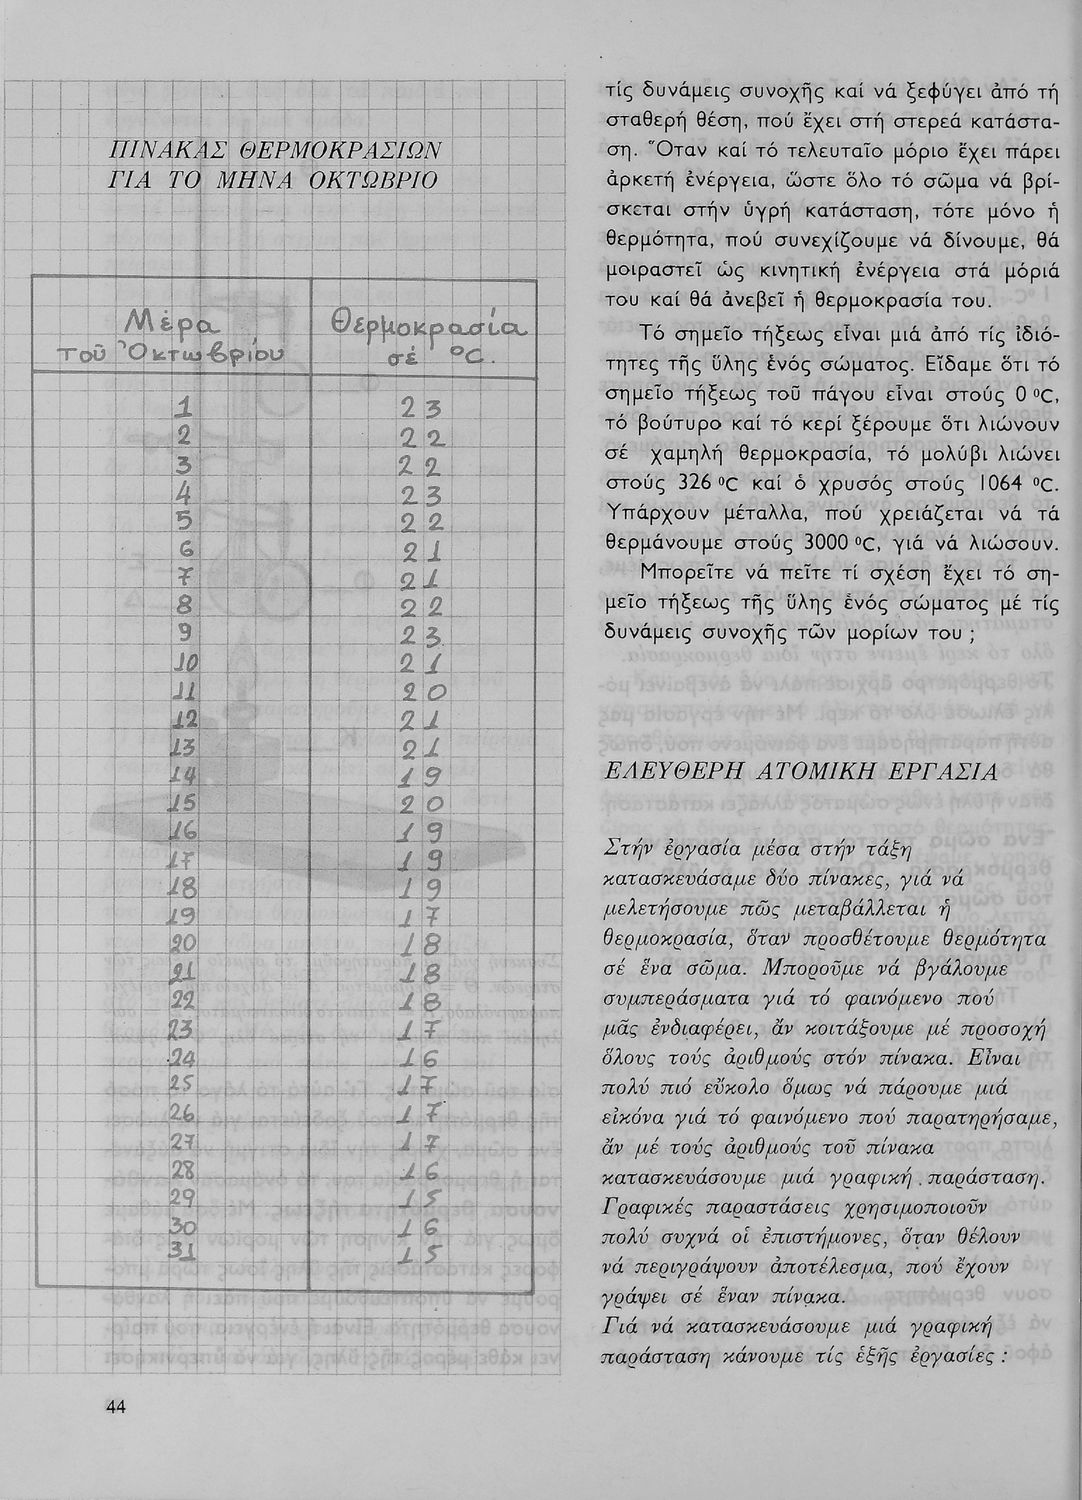 ΠΙΝΑΚΑΣ ΘΕΡΜΟΚΡΑΣΙΩΝ
ΓΙΑ ΤΟ ΜΗΝΑ ΟΚΤΩΒΡΙΟ
Μέρα τοῦ Ὀκτωβρίου Θερμοκρασία σέ °C.
1 23
2 22
3 22
4 23
5 22
6 21
7 21
8 22
9 23
10 21
11 20
12 21
13 21
14 19
15 20
16 19
17 19
18 19
19 17
20 18
21 18
22 18
23 17
24 16
25 17
26 17
27 17
28 16
29 15
30 16
31 15
44
τίς δυνάμεις συνοχῆς καί νά ξεφύγει ἀπό τή
σταθερή θέση, πού ἔχει στή στερεά κατάστα-
ση. Ὅταν καί τό τελευταῖο μόριο ἔχει πάρει
ἀρκετή ἐνέργεια, ὥστε ὅλο τό σῶμα νά βρί-
σκεται στήν ὑγρή κατάσταση, τότε μόνο ἡ
θερμότητα, πού συνεχίζουμε νά δίνουμε, θά
μοιραστεῖ ὡς κινητική ἐνέργεια στά μόριά
του καί θά ἀνεβεῖ ἡ θερμοκρασία του.
Τό σημεῖο τήξεως εἶναι μιά ἀπό τίς ἰδιό-
τητες τῆς ὕλης ἑνός σώματος. Εἴδαμε ὅτι τό
σημεῖο τήξεως τοῦ πάγου εἶναι στούς 0 °C,
τό βούτυρο καί τό κερί ξέρουμε ὅτι λιώνουν
σέ χαμηλή θερμοκρασία, τό μολύβι λιώνει
στούς 326 °C καί ὁ χρυσός στούς 1064 °C.
Ὑπάρχουν μέταλλα, πού χρειάζεται νά τά
θερμάνουμε στούς 3000 °C, γιά νά λιώσουν.
Μπορεῖτε νά πεῖτε τί σχέση ἔχει τό ση-
μεῖο τήξεως τῆς ὕλης ἑνός σώματος μέ τίς
δυνάμεις συνοχῆς τῶν μορίων του ;
ΕΛΕΥΘΕΡΗ ΑΤΟΜΙΚΗ ΕΡΓΑΣΙΑ
Στήν ἐργασία μέσα στήν τάξη
κατασκευάσαμε δύο πίνακες, γιά νά
μελετήσουμε πῶς μεταβάλλεται ἡ
θερμοκρασία, ὅταν προσθέτουμε θερμότητα
σέ ἕνα σῶμα. Μποροῦμε νά βγάλουμε
συμπεράσματα γιά τό φαινόμενο πού
μᾶς ἐνδιαφέρει, ἄν κοιτάξουμε μέ προσοχή
ὅλους τούς ἀριθμούς στόν πίνακα. Εἶναι
πολύ πιό εὔκολο ὅμως νά πάρουμε μιά
εἰκόνα γιά τό φαινόμενο πού παρατηρήσαμε,
ἄν μέ τούς ἀριθμούς τοῦ πίνακα
κατασκευάσουμε μιά γραφική . παράσταση.
Γραφικές παραστάσεις χρησιμοποιοῦν
πολύ συχνά οἱ ἐπιστήμονες, ὅταν θέλουν
νά περιγράψουν ἀποτέλεσμα, πού ἔχουν
γράψει σέ ἕναν πίνακα.
Γιά νά κατασκευάσουμε μιά γραφική
παράσταση κάνουμε τίς ἑξῆς ἐργασίες :